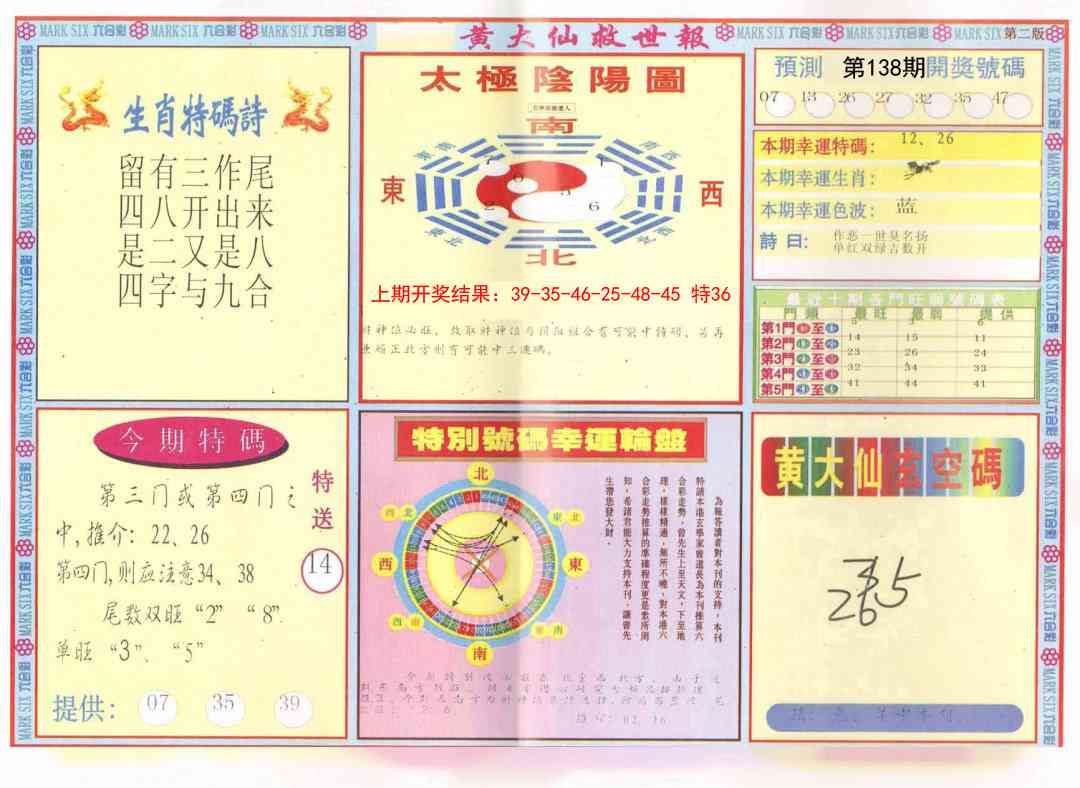 MARK SIX 六合彩 MARK SIX 六合彩 MARK SIX 六合彩
黄大仙救世報
MARK SIX 六合彩 MARK SIX 六合彩 MARK SIX 第二版
生肖特碼詩
留有三作尾
四八开出来
是二又是八
四字与九合
太極陰陽圖
南
東
西
北
上期开奖结果：39-35-46-25-48-45 特36
預測 第138期開獎號碼
07 13 26 27 32 35 47
本期幸運特碼： 12、26
本期幸運生肖：
本期幸運色波： 蓝
詩曰：
作恶一世臭名扬
单红双绿吉数升
最近十期各門旺弱號碼表
門類 最旺 最弱 提供
第1門 至 5 3 6
第2門 至 14 15 11
第3門 至 23 26 24
第4門 至 32 34 33
第5門 至 41 44 41
今期特碼
第三门或第四门之
中,推介：22、26
第四门,则应注意34、38
尾数双旺“2” “8”
单旺 “3”、“5”
特送
14
提供： 07 35 39
特別號碼幸運輪盤
北
西北
東北
西
東
西南
東南
南
為報答讀者對本刊的支持，本刊
特請本港玄學家曾道長為本刊推算六
合彩走勢，曾先生上至天文，下至地
理，樣樣精通，無所不曉，對本港六
合彩走勢推算的準確程度更是衆所周
知，希諸君能大力支持本刊，讓曾先
生響您發大財。
黄大仙玄空碼